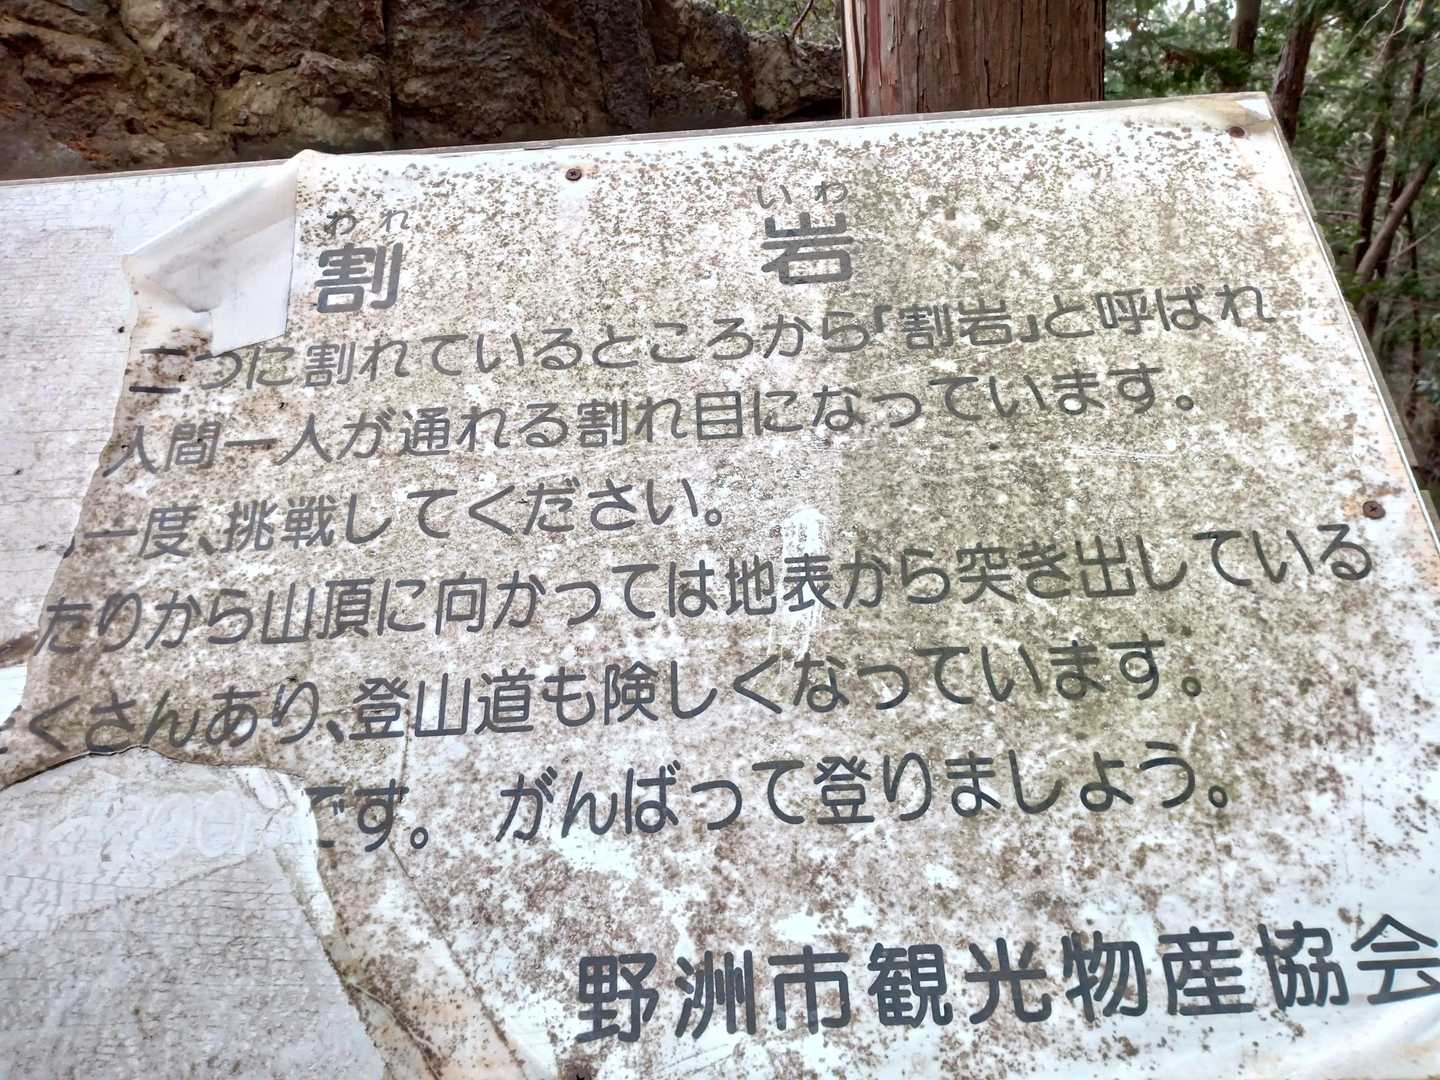 われ いわ
割 岩
二つに割れているところから「割岩」と呼ばれ
人間一人が通れる割れ目になっています。
一度、挑戦してください。
たりから山頂に向かっては地表から突き出している
くさんあり、登山道も険しくなっています。
です。 がんばって登りましょう。
野洲市観光物産協会